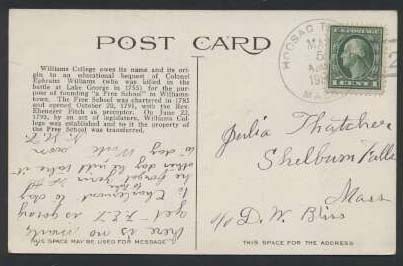 POST CARD
Williams College owes its name and its ori-
gin to an educational bequest of Colonel
Ephraim Williams (who was killed in the
battle at Lake George in 1755) for the pur-
pose of founding "a Free School" in Williams-
town. The Free School was chartered in 1785
and opened October 20, 1791, with the Rev.
Ebenezer Fitch as preceptor. On June 22,
1793, by an act of legislature, Williams Col-
lege was established and to it the property of
the Free School was transferred.
here is no mark
yet - F.E.T is going
to Charlemont to day
to take
he forgot your
other day will take it
to day Write soon
THE SPACE MAY BE USED FOR MESSAGE
HOOSAC T
MA
5
A.M.
MA
U.S. POSTAGE
1 CENT 1
2
Julia Thatcher
Shelburn Falls
Mass
c/o D. W. Bliss
THIS SPACE FOR THE ADDRESS